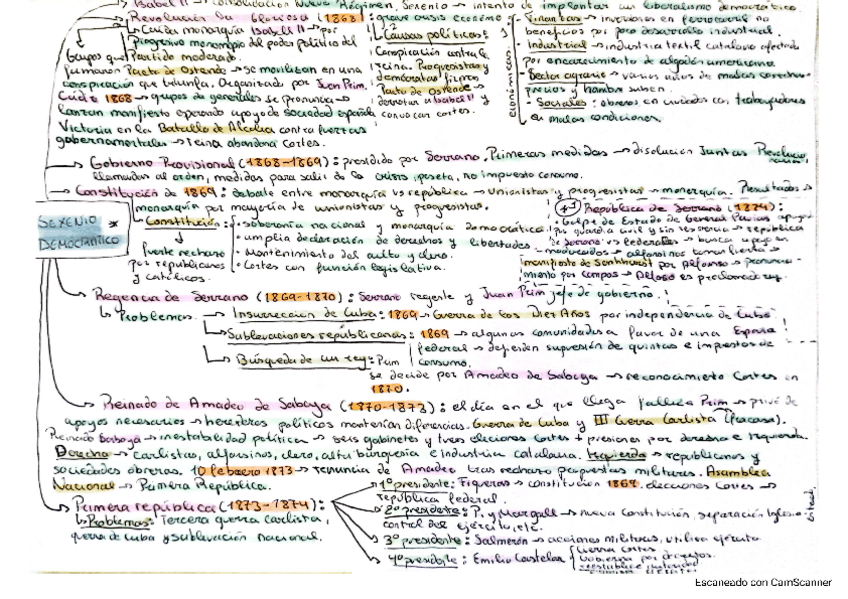 Isabel II → consolidación Nuevo Régimen, Sexenio → intento de implantar un liberalismo democrático.
Revolución la Gloriosa (1868): grave crisis económ
Caída monarquía Isabel II → por
Progresivo monopolio del poder político del
Partido moderado.
Grupos que
firmaron Pacto de Ostende → se movilizan en una
conspiración que triunfa. Organizado por Juan Prim.
Cádiz 1868 → grupos de generales se pronuncia →
lanzan manifiesto esperando apoyo de sociedad española
Victoria en la Batalla de Alcolea contra fuerzas
gobernamentales → reina abandona Cortes.
Causas políticas:
Conspiración contra la
reina. Progresistas y
demócratas firman
Pacto de Ostende →
derrotar a Isabel II y
convocar cortes.
económicas
- Financias → inversiones en ferrocarril no
beneficios por poco desarrollo industrial.
- Industrial → industria textil catalana afectada
por encarecimiento de algodón americano.
- Sector agrario → varios años de malas cosechas
precios y hambre suben.
- Sociales: obreros en ciudades con trabajadores
en malas condiciones.
Gobierno Provisional (1868-1869): presidido por Serrano. Primeras medidas → disolución Juntas
llamadas al orden, medidas para salir de la crisis, peseta, no impuesto consumo.
Constitución de 1869: debate entre monarquía vs república → Unionistas y progresistas → monarquía. Resultados →
monarquía por mayoría de unionistas y progresistas.
SEXENIO
DEMOCRÁTICO *
Constitución:
fuerte rechazo
por republicanos
y católicos.
· soberanía nacional y monarquía democrática
· amplia declaración de derechos y libertades
· Mantenimiento del culto y clero.
· Cortes con función legislativa.
República de Serrano (1874):
Golpe de Estado de General Pavía
por guardia civil y sin → república
de Serrano vs federales → busca apoyo en
moderados → alfonsinos toman fuerza →
manifiesto de Sandhurst por Alfonso → pronuncia-
miento por Campos → Alfonso es proclamado rey.
Regencia de Serrano (1869-1870): Serrano regente y Juan Prim jefe de gobierno.
Problemas
Insurrección de Cuba: 1869 → Guerra de los Diez Años por independencia de Cuba
Sublevaciones republicanas: 1869 → algunas comunidades a favor de una España
federal → defienden supresión de quintas e impuestos de
consumo.
Búsqueda de un rey: Prim
se decide por Amadeo de Saboya → reconocimiento Cortes en
1870.
Reinado de Amadeo de Saboya (1870-1873): el día en el que llega fallece Prim → privó de
apoyos necesarios → herederos políticos mantenían diferencias. Guerra de Cuba y III Guerra Carlista (fracasa).
Reinado Saboya → inestabilidad política → seis gabinetes y tres elecciones Cortes + presiones por derecha e izquierda.
Derecha → carlistas, alfonsinos, clero, alta burguesía e industria catalana. Izquierda → republicanos y
sociedades obreras. 10 febrero 1873 → renuncia de Amadeo tras rechazo propuestas militares. Asamblea
Nacional → Primera República.
Primera república (1873-1874):
Problemas: Tercera guerra carlista,
guerra de Cuba y sublevación nacional.
1º presidente: Figueras → constitución 1869. elecciones Cortes →
república federal.
2º presidente: Pi y Margall → nueva constitución, separación Iglesia
control del ejército, etc.
3º presidente: Salmerón → acciones militares, utiliza ejército
4º presidente: Emilio Castelar
Escaneado con CamScanner